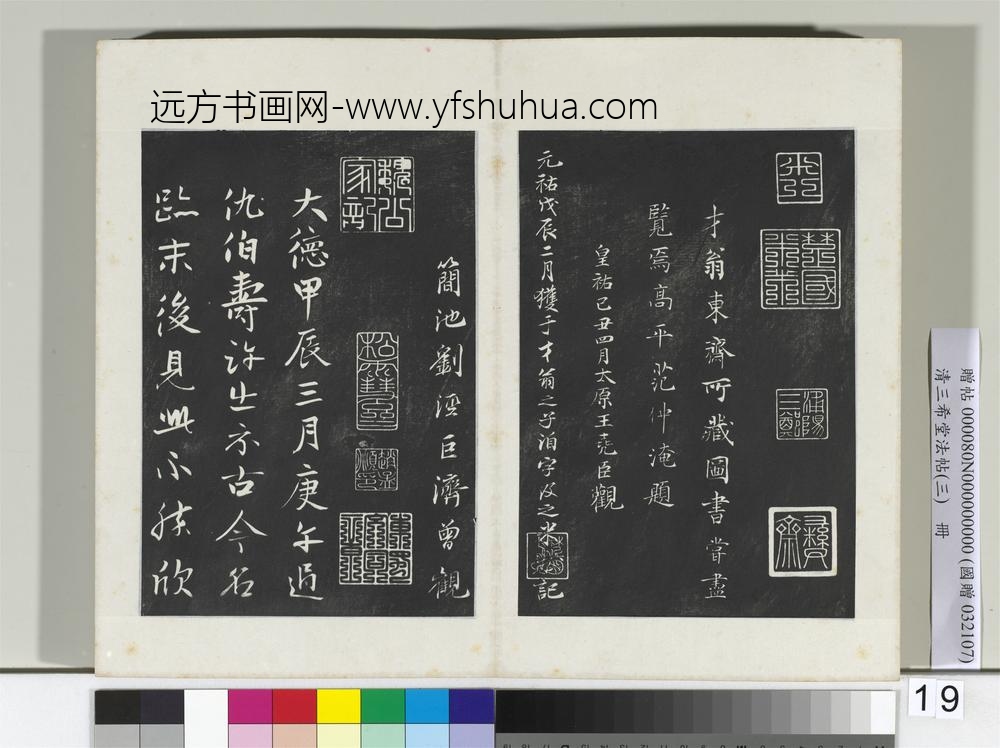 远方书画网-www.yfshuhua.com
才翁東齋所藏圖書嘗盡
覽焉高平范仲淹題
皇祐己丑四月太原王堯臣觀
元祐戊辰二月獲于才翁之子洎字及之米
記
簡池劉涇巨濟曾觀
大德甲辰三月庚午過
仇伯壽許出示古今名
臨末後見此不勝欣
贈帖 000080N000000000 (國贈 032107)
清三希堂法帖(三) 冊
19